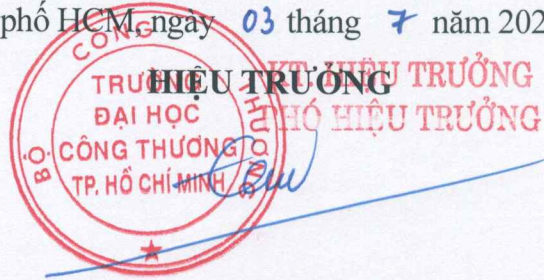 phố HCM, ngày 03 tháng 7 năm 202
HIỆU TRƯỞNG
KT. HIỆU TRƯỞNG
PHÓ HIỆU TRƯỞNG
BỘ CÔNG THƯƠNG
TRƯỜNG
ĐẠI HỌC
CÔNG THƯƠNG
TP. HỒ CHÍ MINH